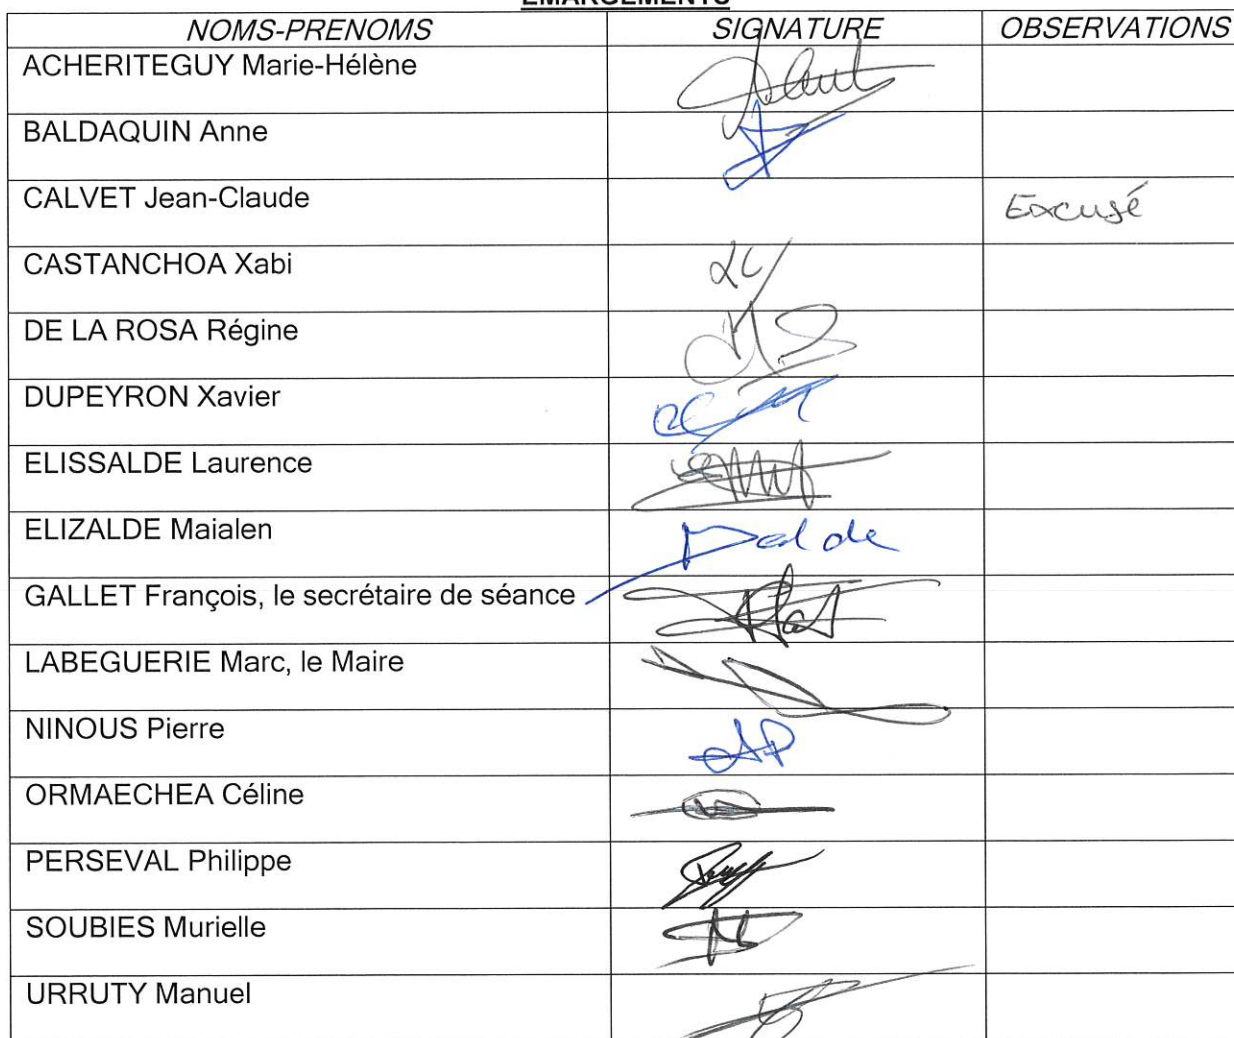 EMARGEMENTS
NOMS-PRENOMS SIGNATURE OBSERVATIONS
ACHERITEGUY Marie-Hélène
BALDAQUIN Anne
CALVET Jean-Claude Excusé
CASTANCHOA Xabi
DE LA ROSA Régine
DUPEYRON Xavier
ELISSALDE Laurence
ELIZALDE Maialen
GALLET François, le secrétaire de séance
LABEGUERIE Marc, le Maire
NINOUS Pierre
ORMAECHEA Céline
PERSEVAL Philippe
SOUBIES Murielle
URRUTY Manuel